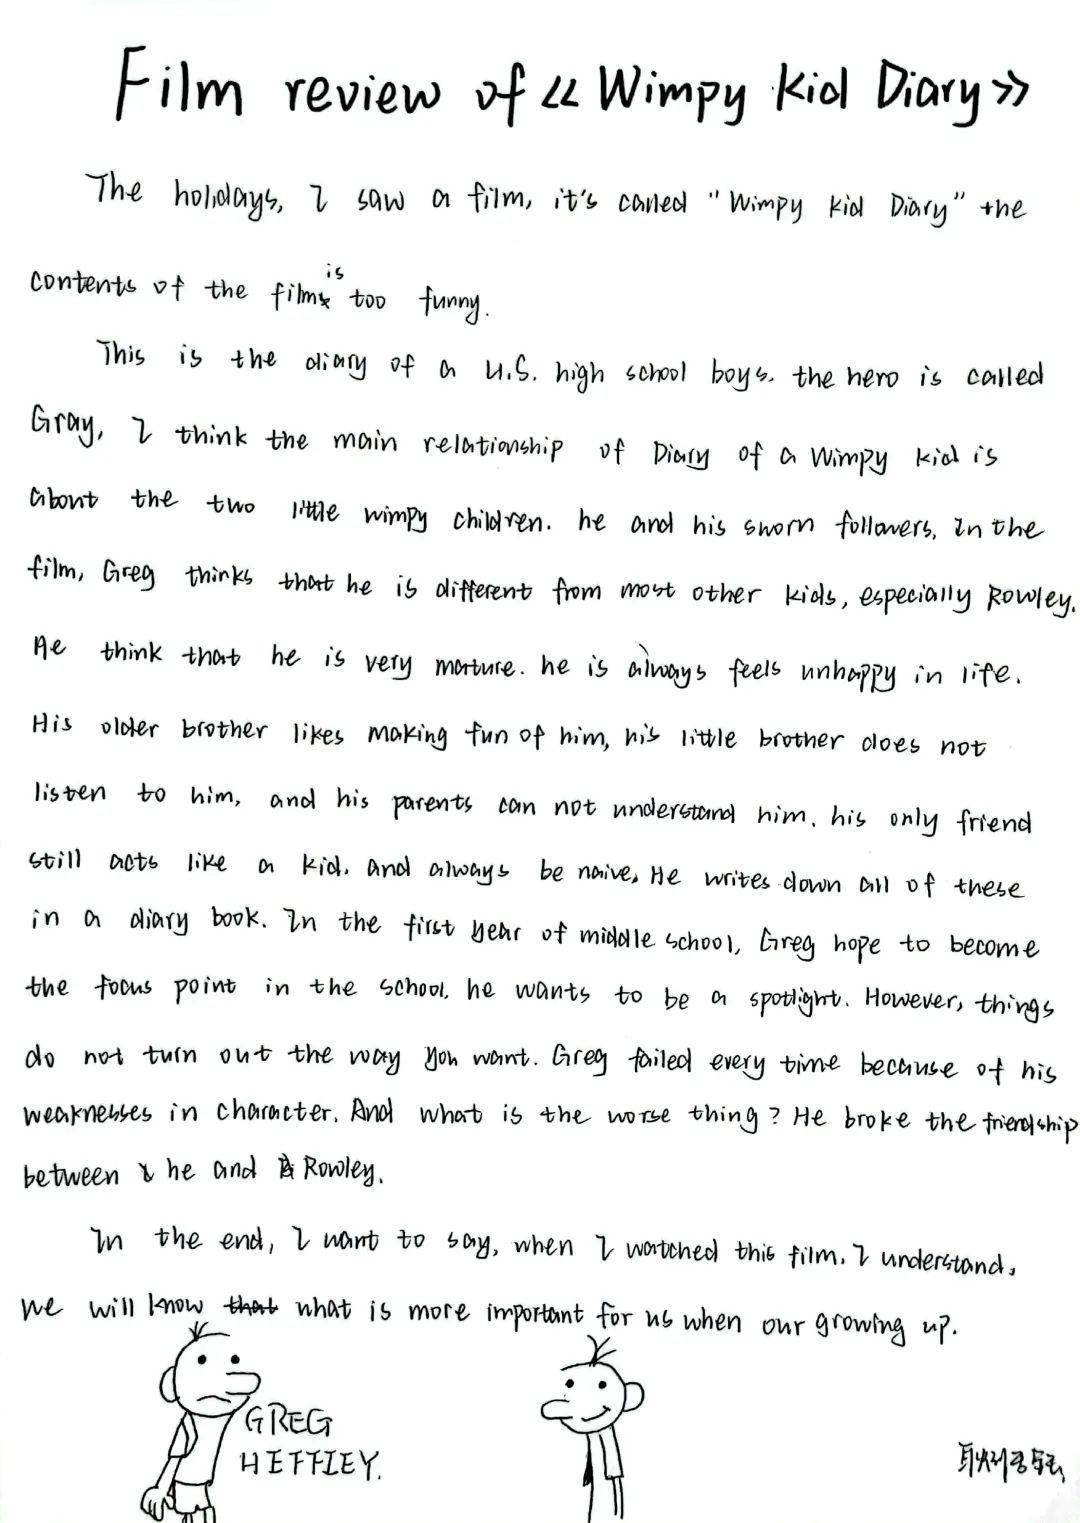 Film review of 《Wimpy Kid Diary》
The holidays, I saw a film, it's called "Wimpy Kid Diary" the
contents of the film is too funny.
This is the diary of a U.S. high school boys. the hero is called
Gray, I think the main relationship of Diary of a Wimpy kid is
about the two little wimpy children. he and his sworn followers, In the
film, Greg thinks that he is different from most other kids, especially Rowley.
He think that he is very marture. he is always feels unhappy in life.
His older brother likes making fun of him, his little brother does not
listen to him, and his parents can not understand him. his only friend
still acts like a kid. And always be naive. He writes down all of these
in a diary book. In the first year of middle school, Greg hope to become
the focus point in the school. he wants to be a spotlight. However, things
do not turn out the way you want. Greg failed every time because of his
weaknesses in character. And what is the worse thing? He broke the friendship
between he and Rowley.
In the end, I want to say, when I watched this film. I understand,
we will know that what is more important for us when our growing up.
GREG
HEFFLEY.